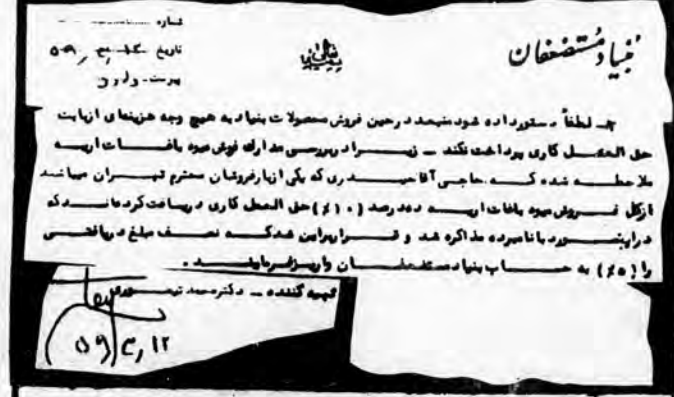 بنیاد مستضعفان
شماره
تاریخ
پیوست - دارد
جـ لطفاً دستور داده شود منبعد در حین فروش محصولات بنیاد به هیچ وجه هزینه‌ای از بابت
حق العمـل کاری پرداخت نکند ــ زیـرا در بررسی مدارک فروش میوه باغـات اریـه
ملاحظـه شده کـه حاجی آقا حیـدری که یکی از بارفروشان محترم تهـران میباشد
از کل فـروش میوه باغات اریـه ده درصد (۱۰٪) حق العمل کاری دریافت کرده‌انـد که
در اینمـورد با نامبرده مذاکره شد و قـرار براین شد کـه نصـف مبلغ دریافتـی
را (۵٪) به حسـاب بنیاد مستضعفـان واریز فرماینـد .
تهیه کننده ــ دکتر محمد تیمـوری
۵۹/۴/۱۲